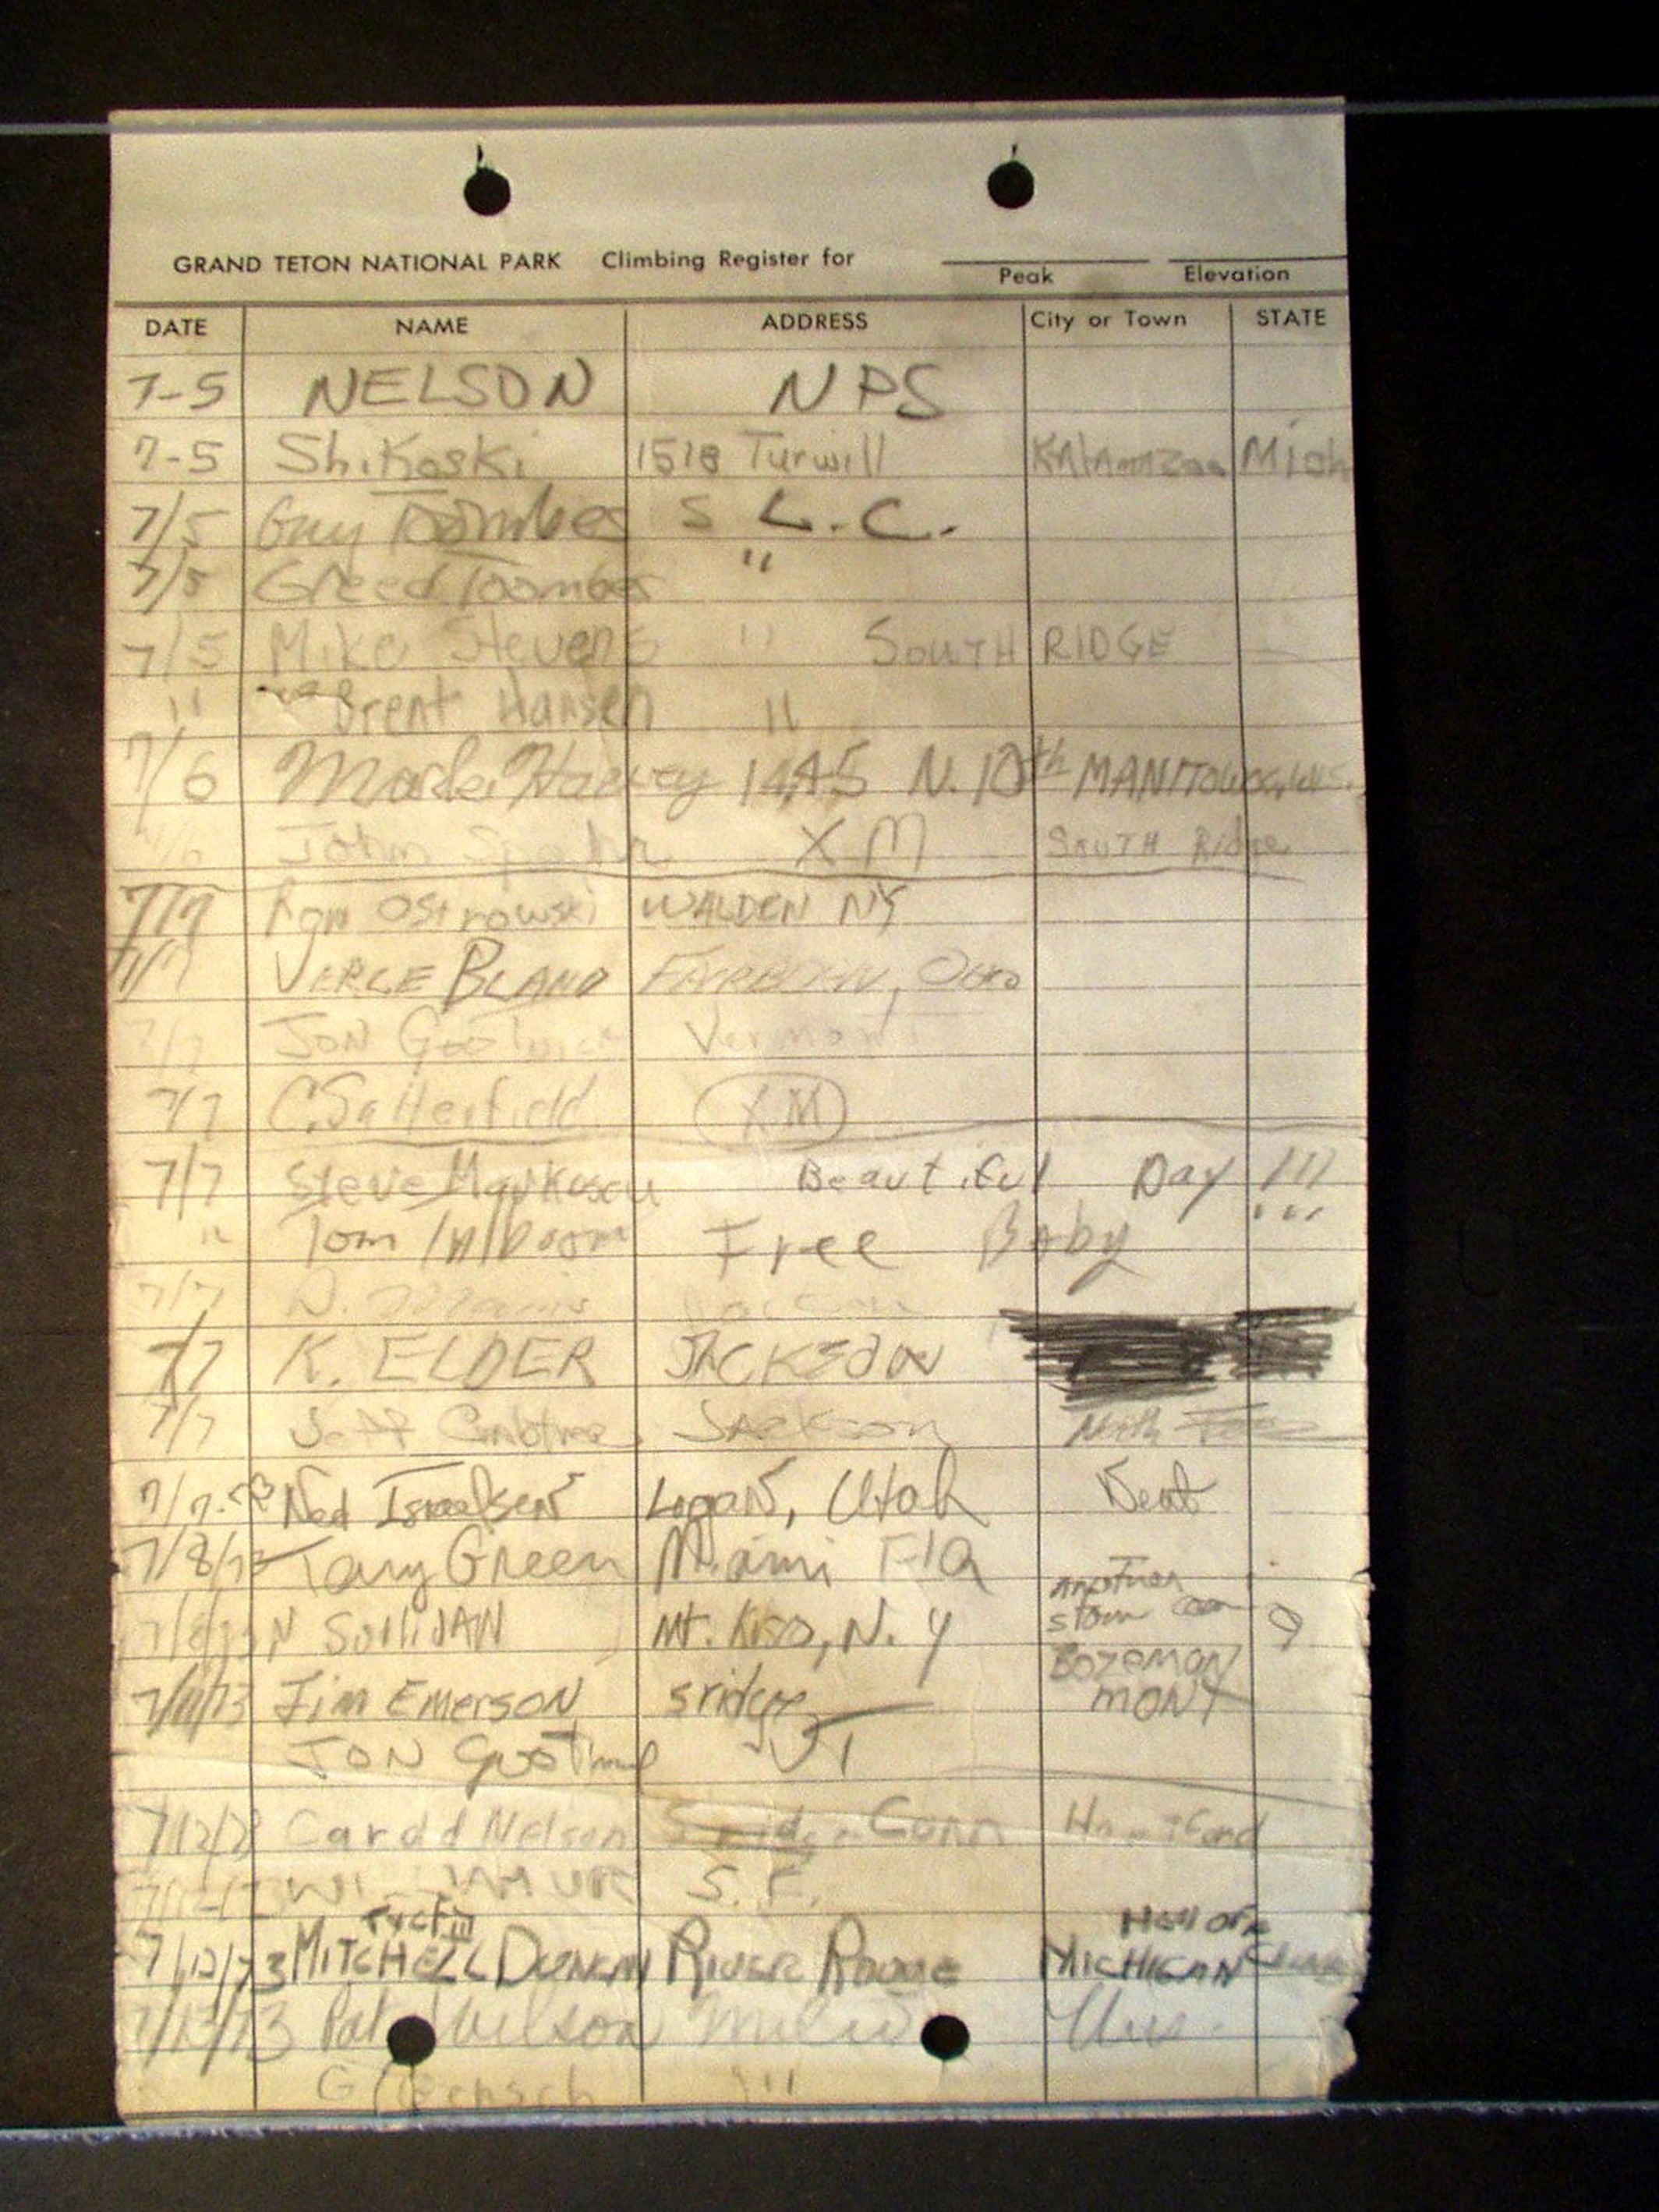 GRAND TETON NATIONAL PARK Climbing Register for
Peak Elevation
DATE NAME ADDRESS City or Town STATE
7-5 NELSON NPS
7-5 Shikoski 1518 Turwill Kalamazoo Mich
7/5 Guy Toombes S L.C.
7/5 Creed Toombes "
7/5 Mike Stevens " SOUTH RIDGE
" Brent Hansen "
7/6 Harvey 1445 N. 10th MANITOWOC, WIS.
John Spahr XM SOUTH Ridge
7/7 Ron Ostrowski WALDEN NY
7/7 VERLE BLAND FAIRBORN, OHIO
7/7 JON Vermont
7/7 C. Satterfield XM
7/7 Steve Markusen Beautiful Day !!!
" Tom Free Baby
7/7 D.
7/7 K. ELDER JACKSON
7/7 Jeff Crabtree Jackson North Face
7/7-73 Ned Israelsen Logan, Utah Neat
7/8/73 Tary Green Miami Fla
N SULLIVAN Mt. Kisco, N.Y another storm
7/11/73 Jim Emerson S ridge BOZEMAN MONT
JON VT
7/12/73 Nelson Conn Hartford
S.F.
7/12/73 MITCHELL DUNCAN III RIVER ROUGE MICHIGAN
7/13/73 Pat Wilson Wis.
"